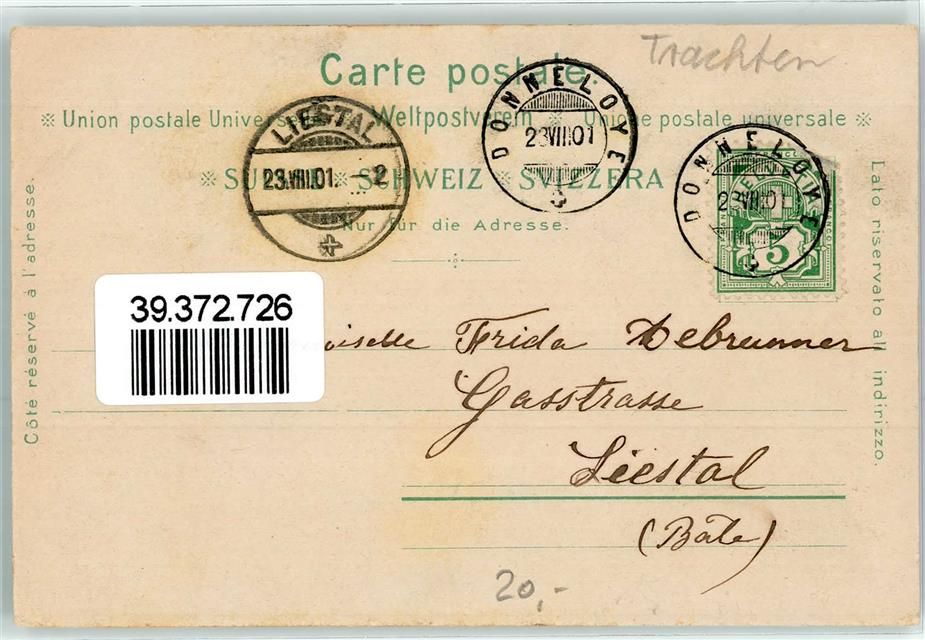 Trachten
Carte postale.
※ Union postale Universelle. Weltpostverein. Unione postale universale ※
※ SUISSE. ※ SCHWEIZ ※ SVIZZERA
Nur für die Adresse.
Côté réservé à l'adresse.
Lato riservato all indirizzo.
LIESTAL
23.VIII.01. – 2
DONNELOYE
23VIII.01
DONNELOYE
23VIII.01
FRANCO
5
39.372.726
oiselle Frida Debrunner
Gasstrasse
Liestal
(Bâle)
20,-